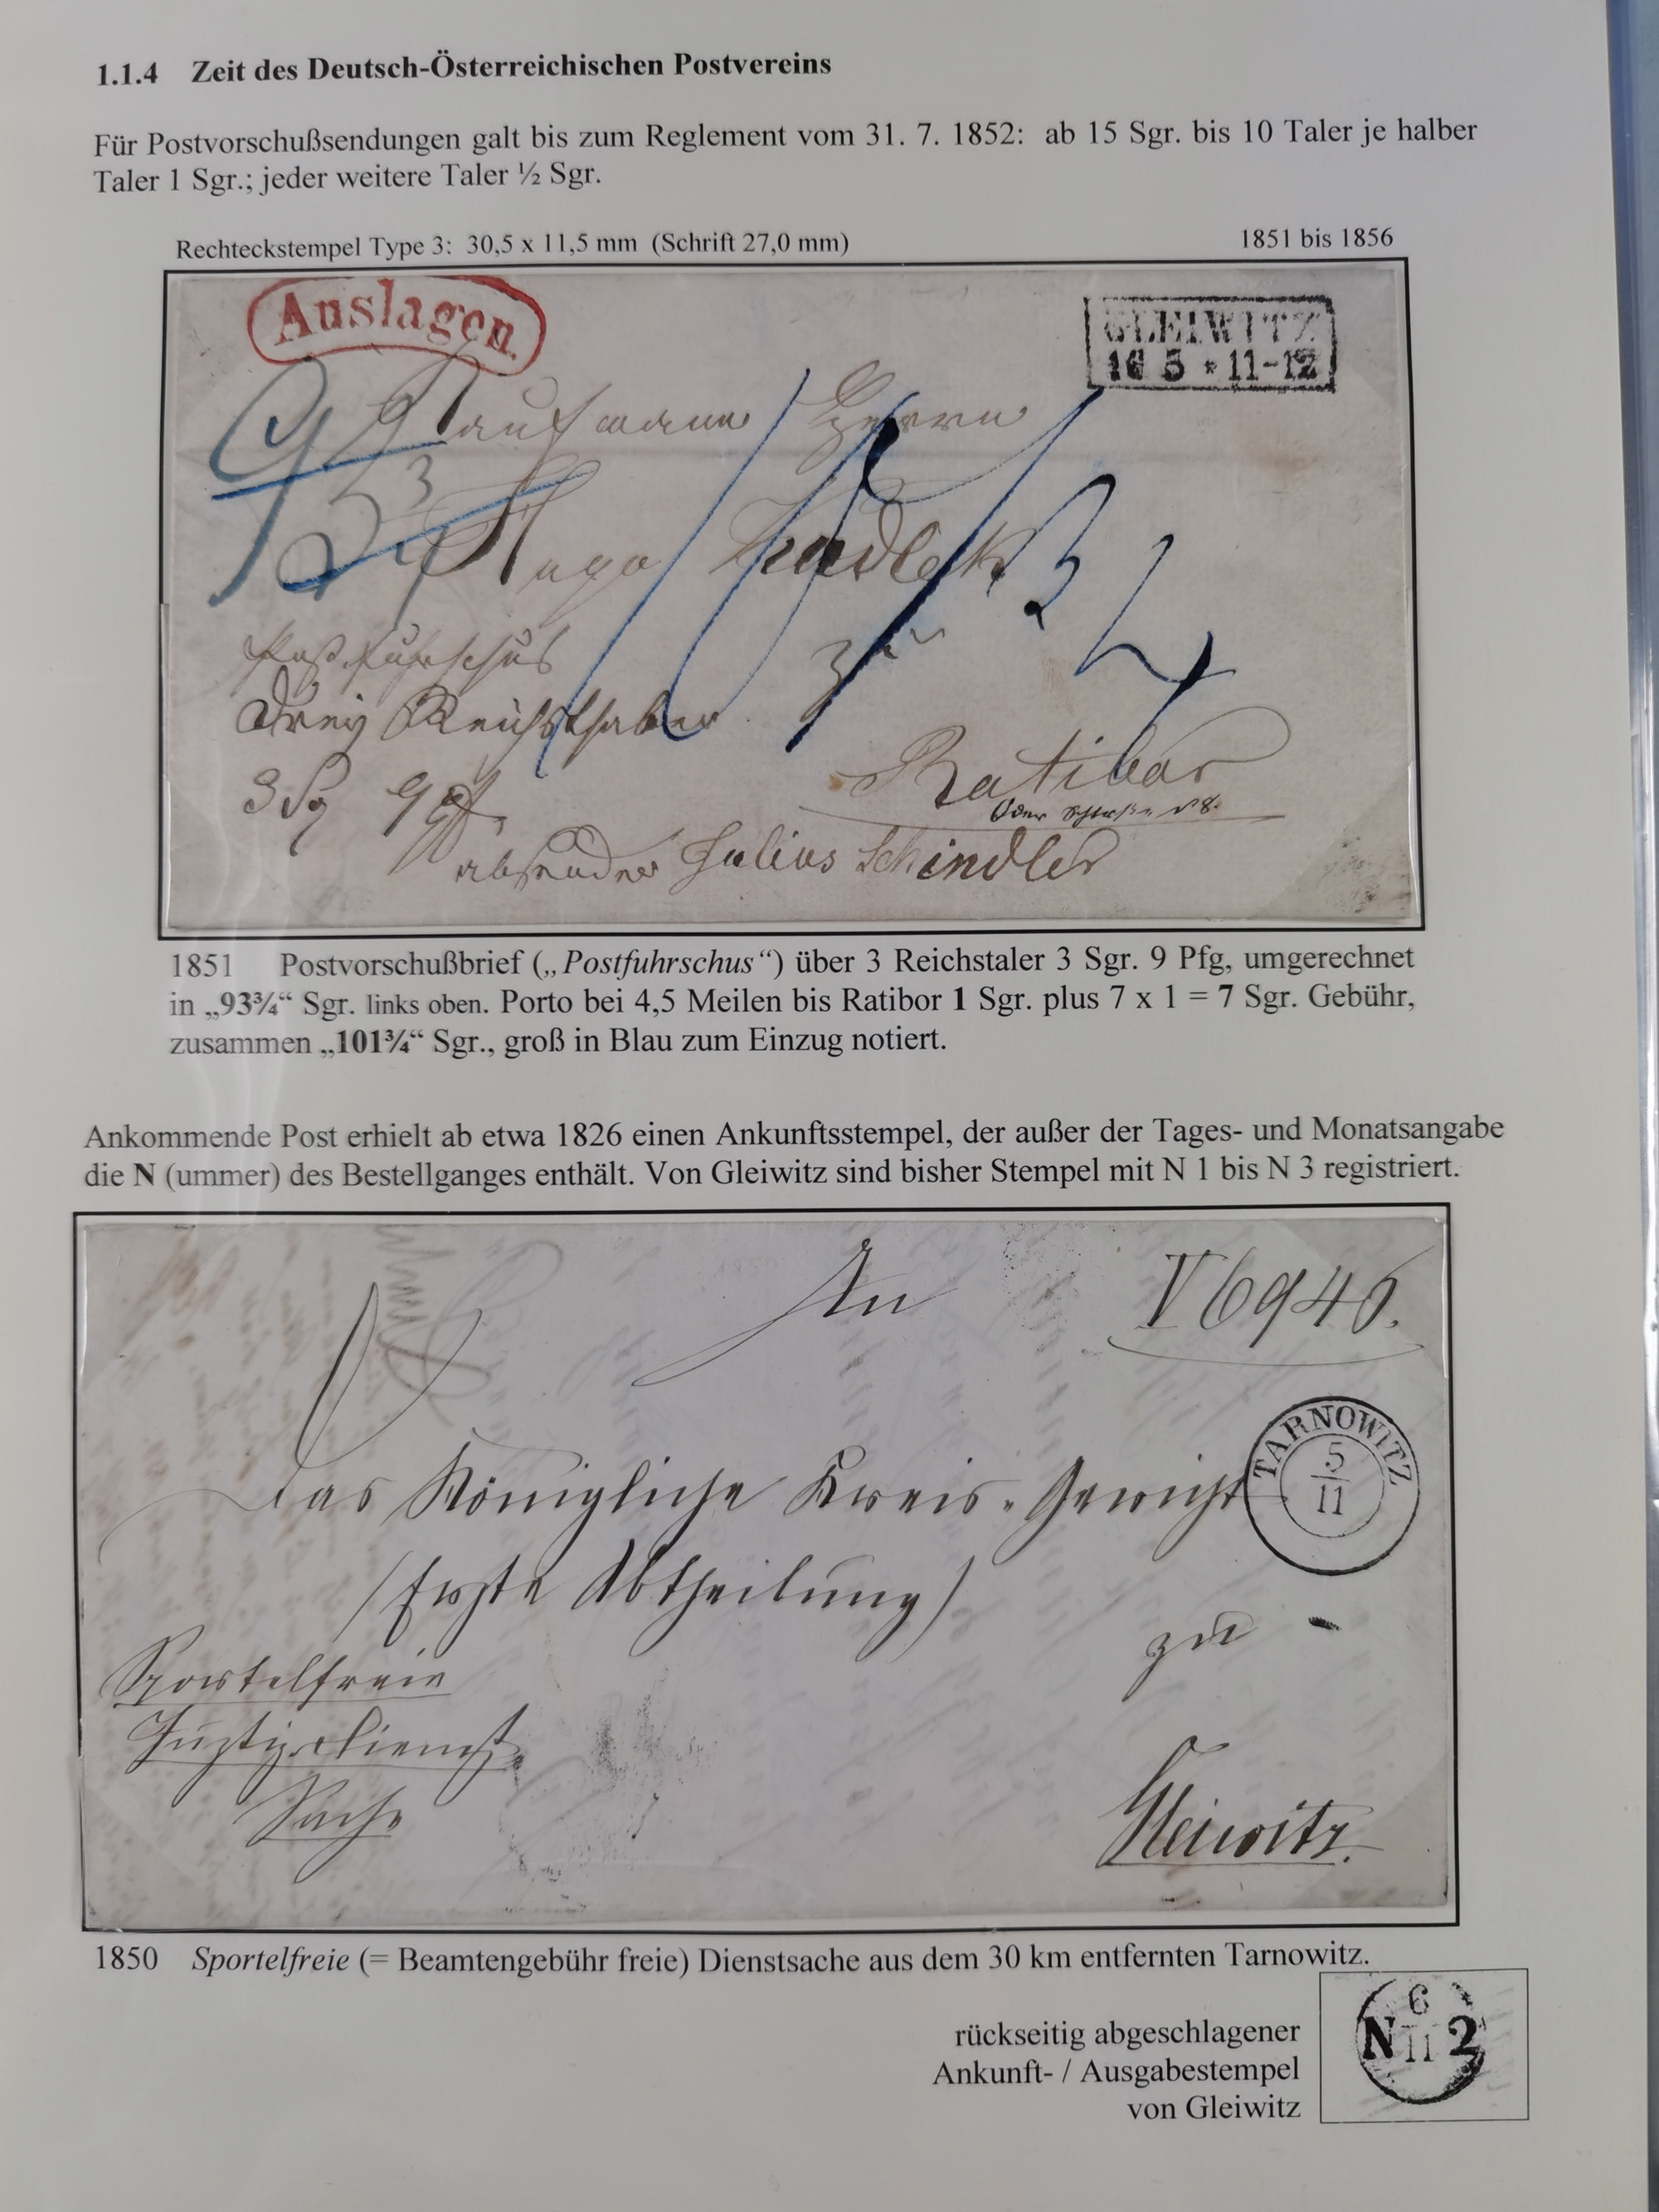 1.1.4 Zeit des Deutsch-Österreichischen Postvereins
Für Postvorschußsendungen galt bis zum Reglement vom 31. 7. 1852: ab 15 Sgr. bis 10 Taler je halber
Taler 1 Sgr.; jeder weitere Taler ½ Sgr.
Rechteckstempel Type 3: 30,5 x 11,5 mm (Schrift 27,0 mm) 1851 bis 1856
Auslagen.
GLEIWITZ
16 5 * 11-12
Kaufmann Herrn
Hugo
zu
Postfuhrschus
drey Reichsthaler
3 Sg 9 Pf
Ratibor
absender Julius Schindler
1851 Postvorschußbrief („Postfuhrschus“) über 3 Reichstaler 3 Sgr. 9 Pfg, umgerechnet
in „93¾“ Sgr. links oben. Porto bei 4,5 Meilen bis Ratibor 1 Sgr. plus 7 x 1 = 7 Sgr. Gebühr,
zusammen „101¾“ Sgr., groß in Blau zum Einzug notiert.
Ankommende Post erhielt ab etwa 1826 einen Ankunftsstempel, der außer der Tages- und Monatsangabe
die N (ummer) des Bestellganges enthält. Von Gleiwitz sind bisher Stempel mit N 1 bis N 3 registriert.
An
V 6946.
TARNOWITZ
5
11
das Königliche Kreis-Gericht
(Erste Abtheilung)
zu
Sportelfreie
Justiz-Dienst
Sache
Gleiwitz.
1850 Sportelfreie (= Beamtengebühr freie) Dienstsache aus dem 30 km entfernten Tarnowitz.
rückseitig abgeschlagener
Ankunft- / Ausgabestempel
von Gleiwitz
6
N 11 2